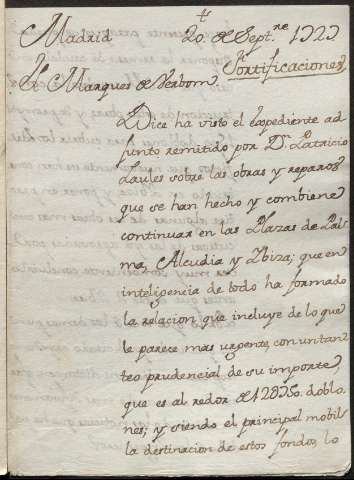 Madrid 20. de Sept.re 1727
Fortificaciones
El Marques de Verbom
Dice ha visto el expediente ad
junto remitido por Dn. Patricio
Laules sobre las obras y reparos
que se han hecho y combiene
continuar en las Plazas de Pal
ma, Alcudia y Ybiza; que en
inteligencia de todo ha formado
la relacion que incluye de lo que
le parece mas urgente, con un tan
teo prudencial de su importe,
que es al redor de doblo
nes; y siendo el principal mobil
la destinacion de estos fondos, lo